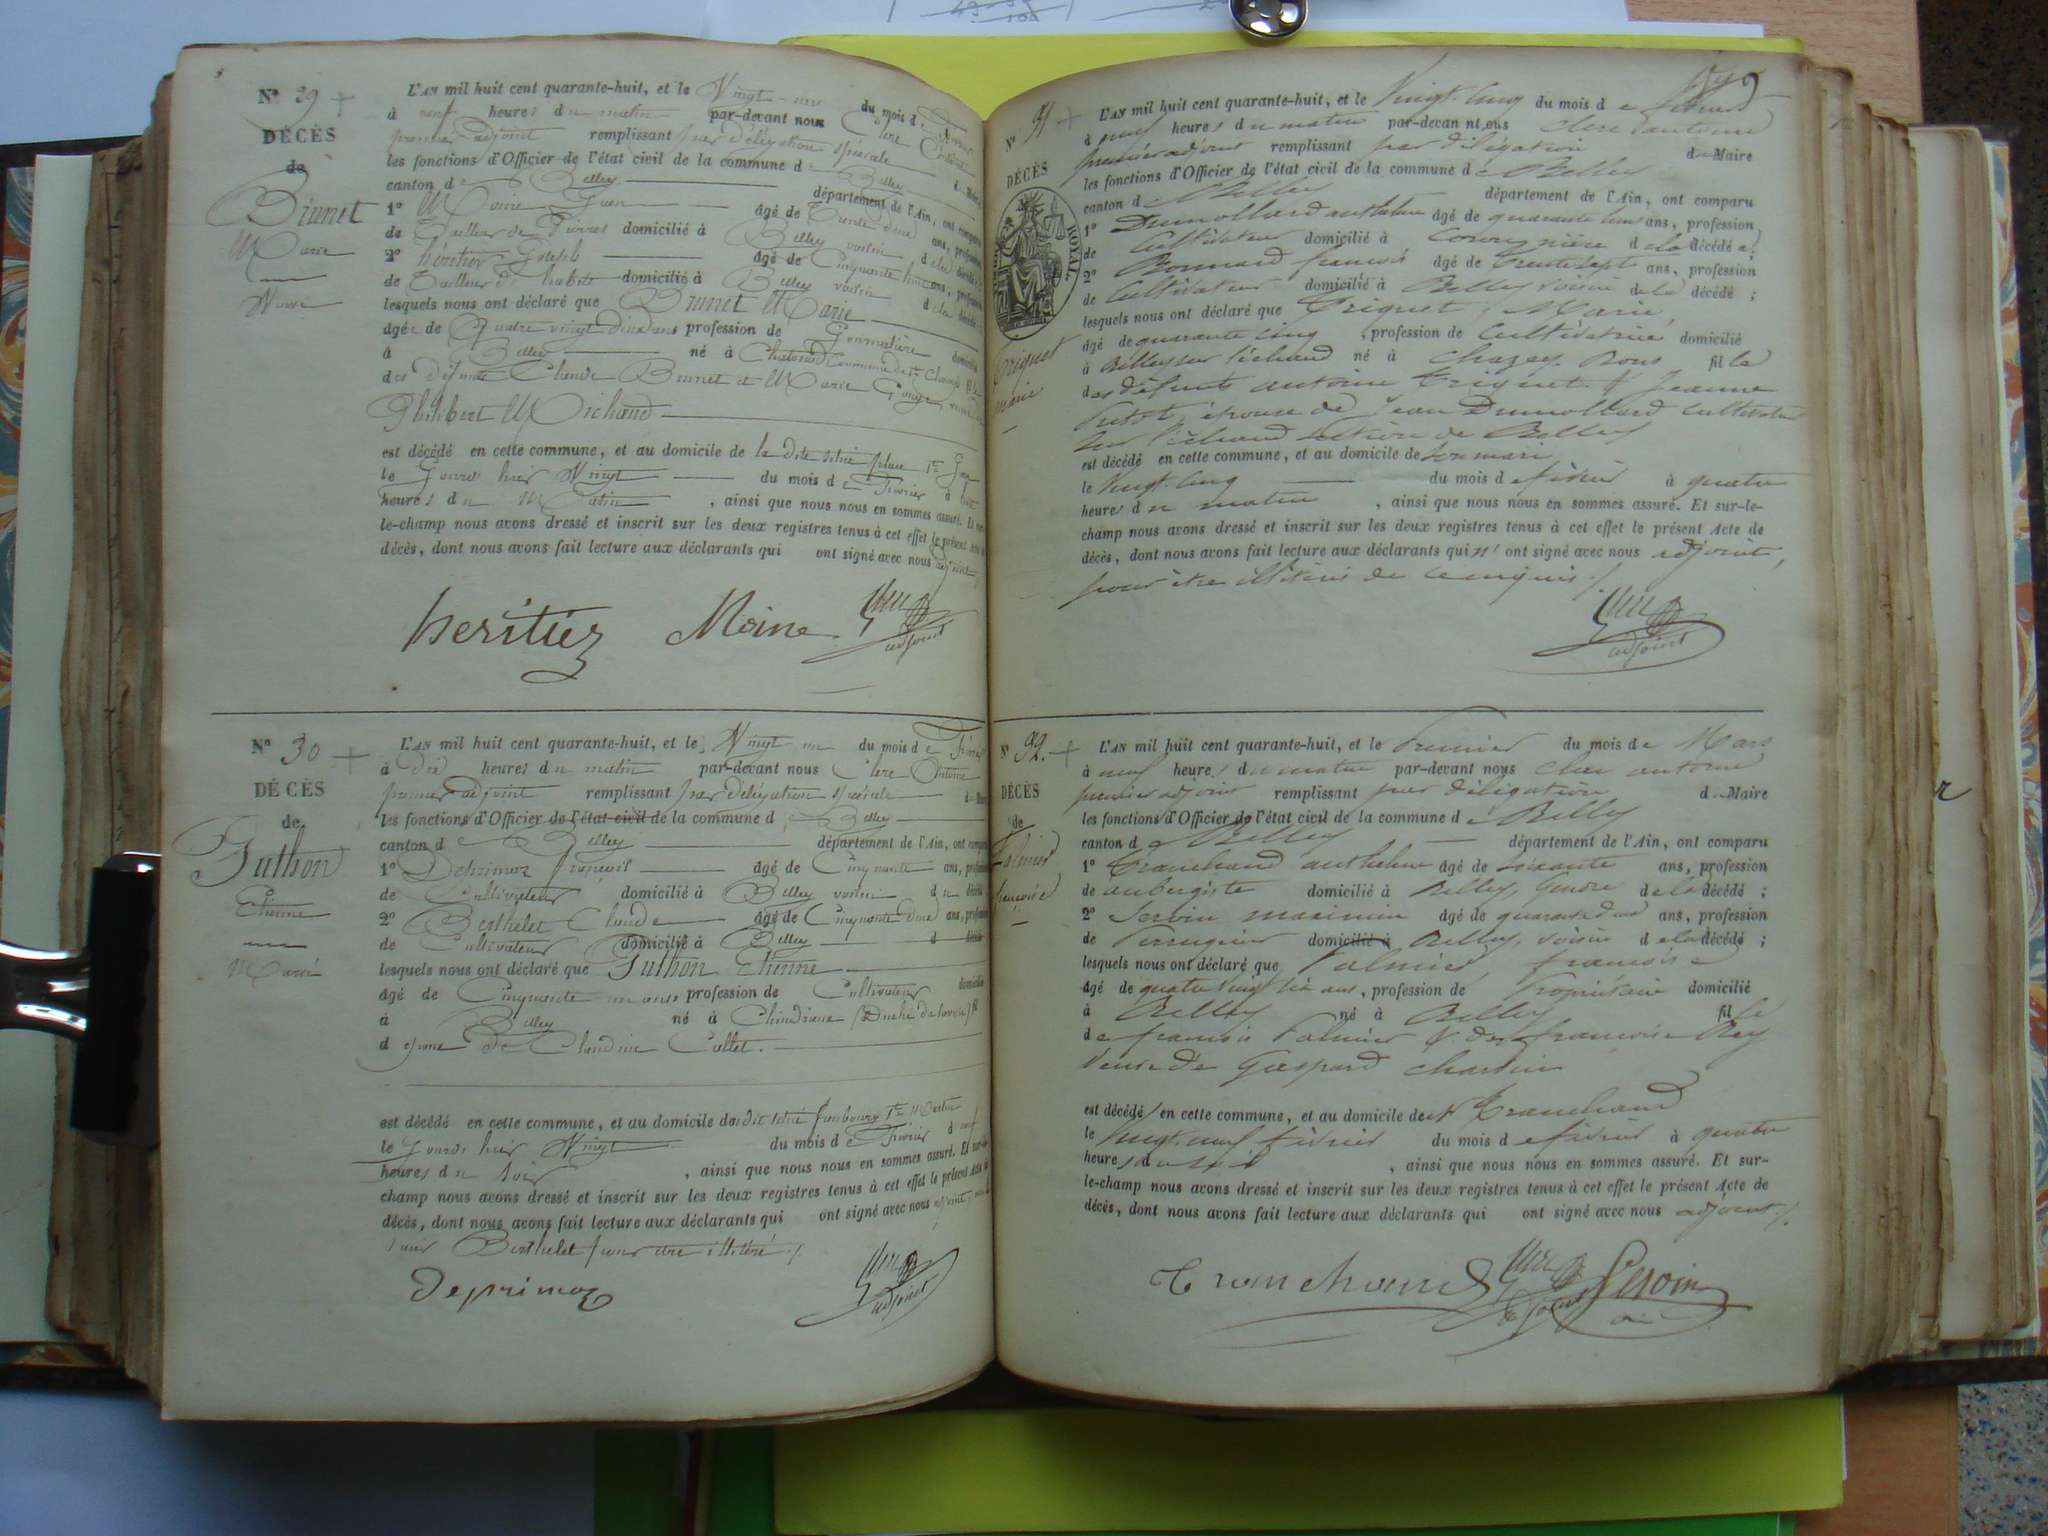 Nº 29 +
DÉCÈS
de
Brunet
Marie
Veuve
L'AN mil huit cent quarante-huit, et le Vingt-un du mois de Février
à neuf heures du matin par-devant nous Clerc Antoine
premier adjoint remplissant par délégation spéciale du Maire
les fonctions d'Officier de l'état civil de la commune de Belley
canton de Belley département de l'Ain, ont comparu
1º Moine âgé de Trente deux ans, profession
de Tailleur de Pierres domicilié à Belley voisin de la décédée
2º héritier Joseph âgé de Cinquante huit ans, profession
de Tailleur d'habits domicilié à Belley voisin de la décédée
lesquels nous ont déclaré que Brunet Marie
âgée de Quatre vingt deux ans profession de domiciliée
à Belley né à Commune de St Champ fille
des défunts Claude Brunet et Marie Goujet, veuve de
Philibert Michaud
est décédé en cette commune, et au domicile de la dite situé place
le Jourd'hier Vingt du mois de Février à huit
heures du Matin, ainsi que nous nous en sommes assuré. Et sur-
le-champ nous avons dressé et inscrit sur les deux registres tenus à cet effet le présent Acte de
décès, dont nous avons fait lecture aux déclarants qui ont signé avec nous adjoint
heritiez Moine Clerc adjoint
Nº 30 +
DÉCÈS
de
Guthon
Etienne
Marié
L'AN mil huit cent quarante-huit, et le Vingt-un du mois de Février
à dix heures du matin par-devant nous Clerc Antoine
premier adjoint remplissant par délégation spéciale du Maire
les fonctions d'Officier de l'état civil de la commune de Belley
canton de Belley département de l'Ain, ont comparu
1º Deprimoz François âgé de Cinquante ans, profession
de Cultivateur domicilié à Belley voisin du décédé
2º Berthelet Claude âgé de Cinquante deux ans, profession
de Cultivateur domicilié à Belley d décédé
lesquels nous ont déclaré que Guthon Etienne
âgé de Cinquante un ans profession de Cultivateur domicilié
à Belley né à Chindrieux (Duché de Savoie) fil
d époux de Claudine Collet.
est décédé en cette commune, et au domicile du dit situé faubourg St Martin
le Jourd'hier Vingt du mois de Février à neuf
heures du soir, ainsi que nous nous en sommes assuré. Et sur-le-
champ nous avons dressé et inscrit sur les deux registres tenus à cet effet le présent Acte de
décès, dont nous avons fait lecture aux déclarants qui ont signé avec nous adjoint,
Berthelet pour être illitéré ./.
Deprimoz Clerc adjoint
Nº 31 +
DÉCÈS
ROYAL
Triquet
Marie
L'AN mil huit cent quarante-huit, et le Vingt-Cinq du mois de février
à neuf heures du matin par-devant nous Clerc antoine
premier adjoint remplissant par délégation du Maire
les fonctions d'Officier de l'état civil de la commune de Belley
canton de Belley département de l'Ain, ont comparu
1º Dumollard anthelme âgé de quarante huit ans, profession
de Cultivateur domicilié à d la décédée;
2º Bonnard françois âgé de trente sept ans, profession
de Cultivateur domicilié à Belley voisin de la décédé;
lesquels nous ont déclaré que Triquet, Marie,
âgé de quarante cinq, profession de Cultivatrice domicilié
à Belley sur l'échaud né à Chazey Bons fille
des défunts antoine Triquet & Jeanne
épouse de Jean Dumollard Cultivateur
sur l'échaud section de Belley
est décédé en cette commune, et au domicile de son mari
le Vingt-Cinq du mois de février à quatre
heures du matin, ainsi que nous nous en sommes assuré. Et sur-le-
champ nous avons dressé et inscrit sur les deux registres tenus à cet effet le présent Acte de
décès, dont nous avons fait lecture aux déclarants qui n'ont signé avec nous adjoint,
pour être illitérés de ce enquis ./.
Clerc adjoint
Nº 32. +
DÉCÈS
de
Palmier
françoise
L'AN mil huit cent quarante-huit, et le Premier du mois de Mars
à neuf heures du matin par-devant nous Clerc antoine
premier adjoint remplissant par délégation du Maire
les fonctions d'Officier de l'état civil de la commune de Belley
canton de Belley département de l'Ain, ont comparu
1º Tranchand anthelme âgé de soixante ans, profession
de aubergiste domicilié à Belley, Gendre de la décédé;
2º Seroin maximin âgé de quarante deux ans, profession
de Perruquier domicilié à Belley, voisin de la décédé;
lesquels nous ont déclaré que Palmier, françoise
âgé de quatre vingt six ans, profession de Propriétaire domicilié
à Belley né à Belley fille
de françois Palmier & de françoise Rey
Veuve de Gaspard Charvin
est décédé en cette commune, et au domicile de Tranchand
le Vingt-neuf février du mois de février à quatre
heures du soir, ainsi que nous nous en sommes assuré. Et sur-
le-champ nous avons dressé et inscrit sur les deux registres tenus à cet effet le présent Acte de
décès, dont nous avons fait lecture aux déclarants qui ont signé avec nous adjoint ./.
Tranchand Clerc adjoint Seroin